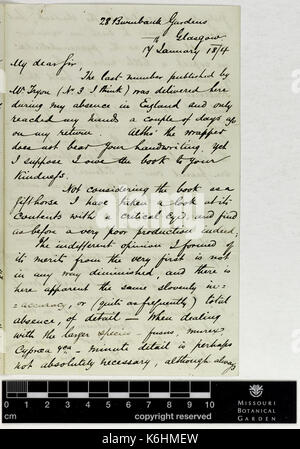 28 Burnbank Gardens
Glasgow
17 January 1874
My dear Sir,
The last number published by
Mr Tryon (No 3 I think) was delivered here
during my absence in England and only
reached my hands a couple of days ago
on my return. Altho' the wrapper
does not bear your handwriting, yet
I suppose I owe the book to your
kindness.
Not considering the book as a
gifthorse I have taken a look at its
contents with a critical eye, and find
as before a very poor production indeed.
The indifferent opinion I formed of
its merits from the very first is not
in any way diminished, and there is
here apparent the same slovenly in=
=accuracy, or (quite as frequently) total
absence, of detail — When dealing
with the larger species — fusus, murex
Cypraea &c — minute detail is perhaps
not absolutely necessary, although always
alamy
0 cm 10
copyright reserved
MISSOURI
BOTANICAL
GARDEN
alamy
Image ID: K6HMEW
www.alamy.com